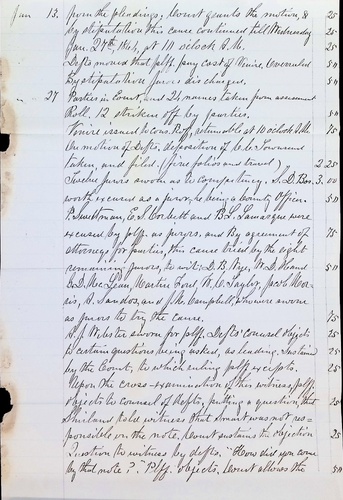 Jan 13. from the pleadings, Court grants the motion, & 25
by stipulation this cause continued till Wednesday
Jan. 27th, 1864, at 10 oclock A.M. 25
Defts moved that plff. pay cost of Venire. Overruled 50
By stipulation jurors discharged. 25
" 27 Parties in Court, and 24 names taken from assessment
Roll. 12 striken off by parties. 50
Venire issued to Cons. returnable at 10 oclock A.M. 75
On motion of Defts, deposition of Townsend
taken, and filed. (five folios and travel) 2 25
Twelve jurors sworn as to competency. S. D. Bos- 3.00
worth excused as a juror, he being a County Officer. 25
P. Sweetman, E. S. Corbett and B. Lamarque were
excused by plff. as jurors, and By agreement of 75
attorneys for parties, this cause tried by the eight
remaining jurors, to wit: D. B. Nye, W. D. Hand 50
D. McLean, Martin Ford, W. C. Taylor, Jacob Mor-
ris, A. Sandos, and J. M. Campbell, who were sworn
as jurors to try the cause. 75
A. J. Webster sworn for plff. Defts' counsel objects 25
to certain questions being asked, as leading. Sustained
by the Court, to which ruling plff excepts. 25
Upon the cross-examination of this witness, plff.
objects to counsel of defts, putting a question, that
told witness that Smart was not res-
ponsible on the note. Court sustains the objection 25
Question to witness by defts. "How did you come
by that note?" Plff. objects. Court allows the 50